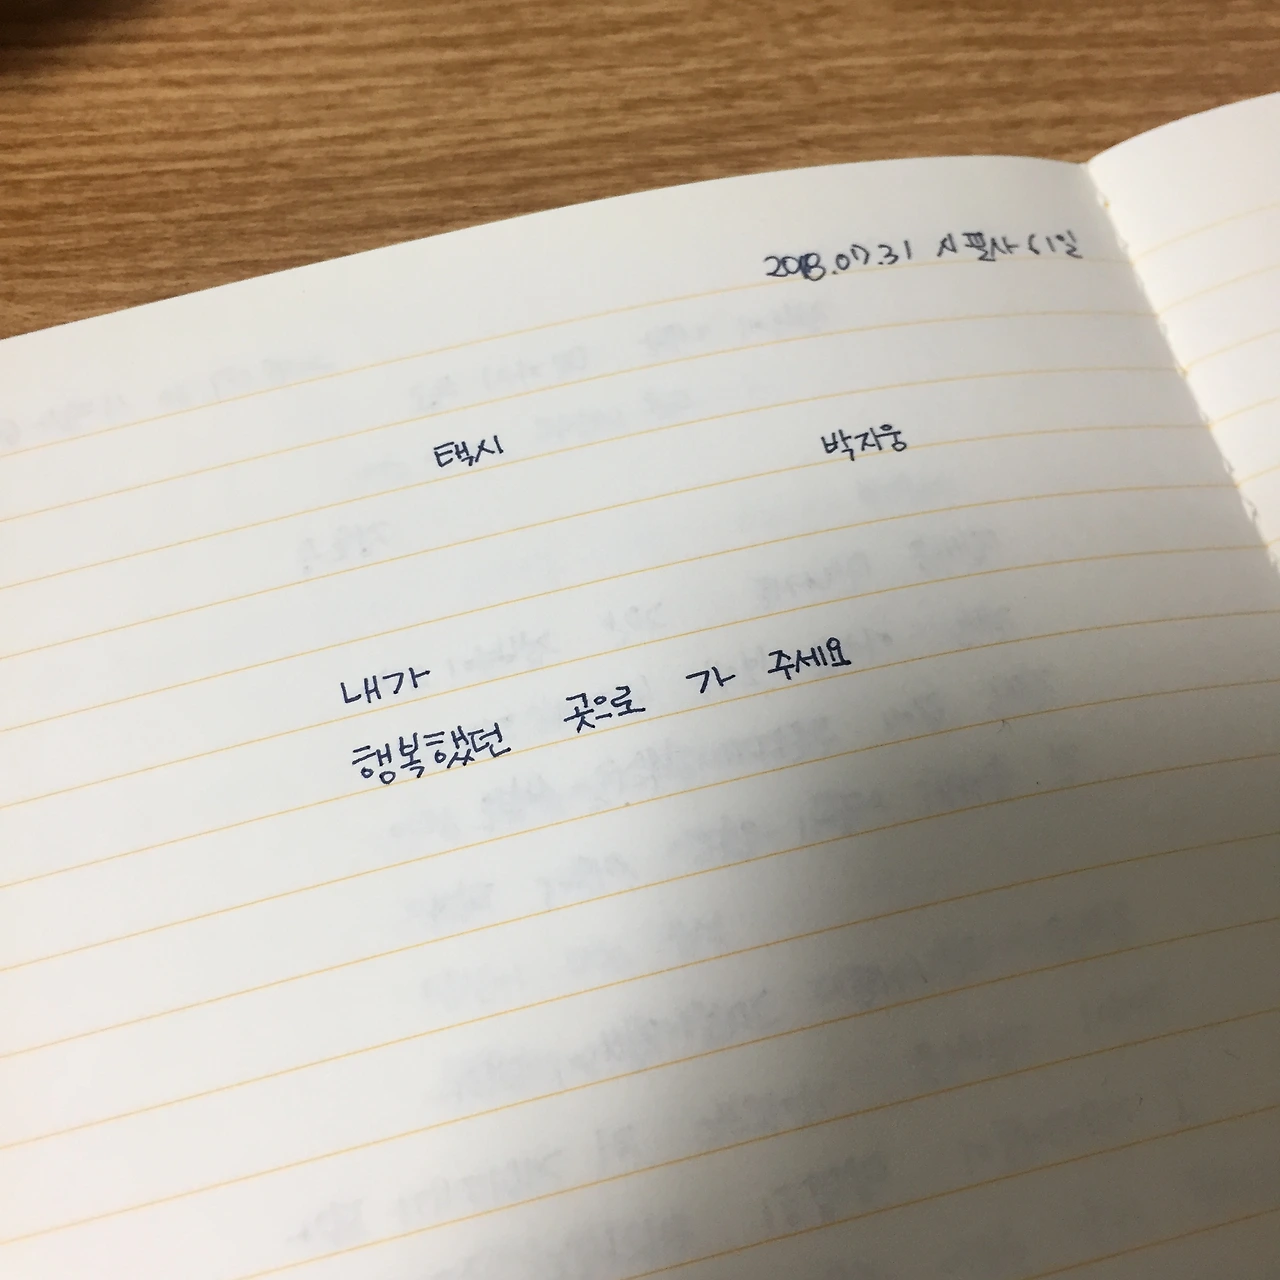 2018.07.31 시필사 61일
택시 박지웅
내가
행복했던 곳으로 가 주세요